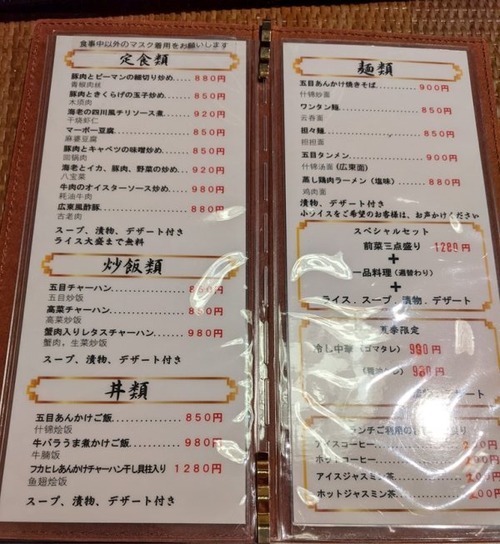 食事中以外のマスク着用をお願いします
定食類
豚肉とピーマンの細切り炒め....880円
青椒肉丝
豚肉ときくらげの玉子炒め....850円
木须肉
海老の四川風チリソース煮....920円
干烧虾仁
マーボー豆腐....850円
麻婆豆腐
豚肉とキャベツの味噌炒め....850円
回锅肉
海老とイカ、豚肉、野菜の炒め..920円
八宝菜
牛肉のオイスターソース炒め....980円
蚝油牛肉
広東風酢豚....880円
古老肉
スープ、漬物、デザート付き
ライス大盛まで無料
炒飯類
五目チャーハン....850円
五目炒饭
高菜チャーハン....850円
高菜炒饭
蟹肉入りレタスチャーハン....980円
蟹肉，生菜炒饭
スープ、漬物、デザート付き
丼類
五目あんかけご飯....850円
什锦烩饭
牛バラうま煮かけご飯....980円
牛腩饭
フカヒレあんかけチャーハン干し貝柱入り 1280円
鱼翅烩饭
スープ、漬物、デザート付き
麺類
五目あんかけ焼きそば....900円
什锦炒面
ワンタン麺....850円
云吞面
担々麺....850円
担担面
五目タンメン....900円
什锦汤面(広東面)
蒸し鶏肉ラーメン(塩味)....880円
鸡肉面
漬物、デザート付き
小ライスをご希望のお客様は、お声かけください
スペシャルセット
前菜三点盛り 1280円
+
一品料理(週替わり)
+
ライス、スープ、漬物、デザート
夏季限定
冷し中華(ゴマタレ) 980円
(醤油タレ)
デザート
ランチご利用の
アイスコーヒー....200円
ホットコーヒー....200円
アイスジャスミン茶....200円
ホットジャスミン茶....200円